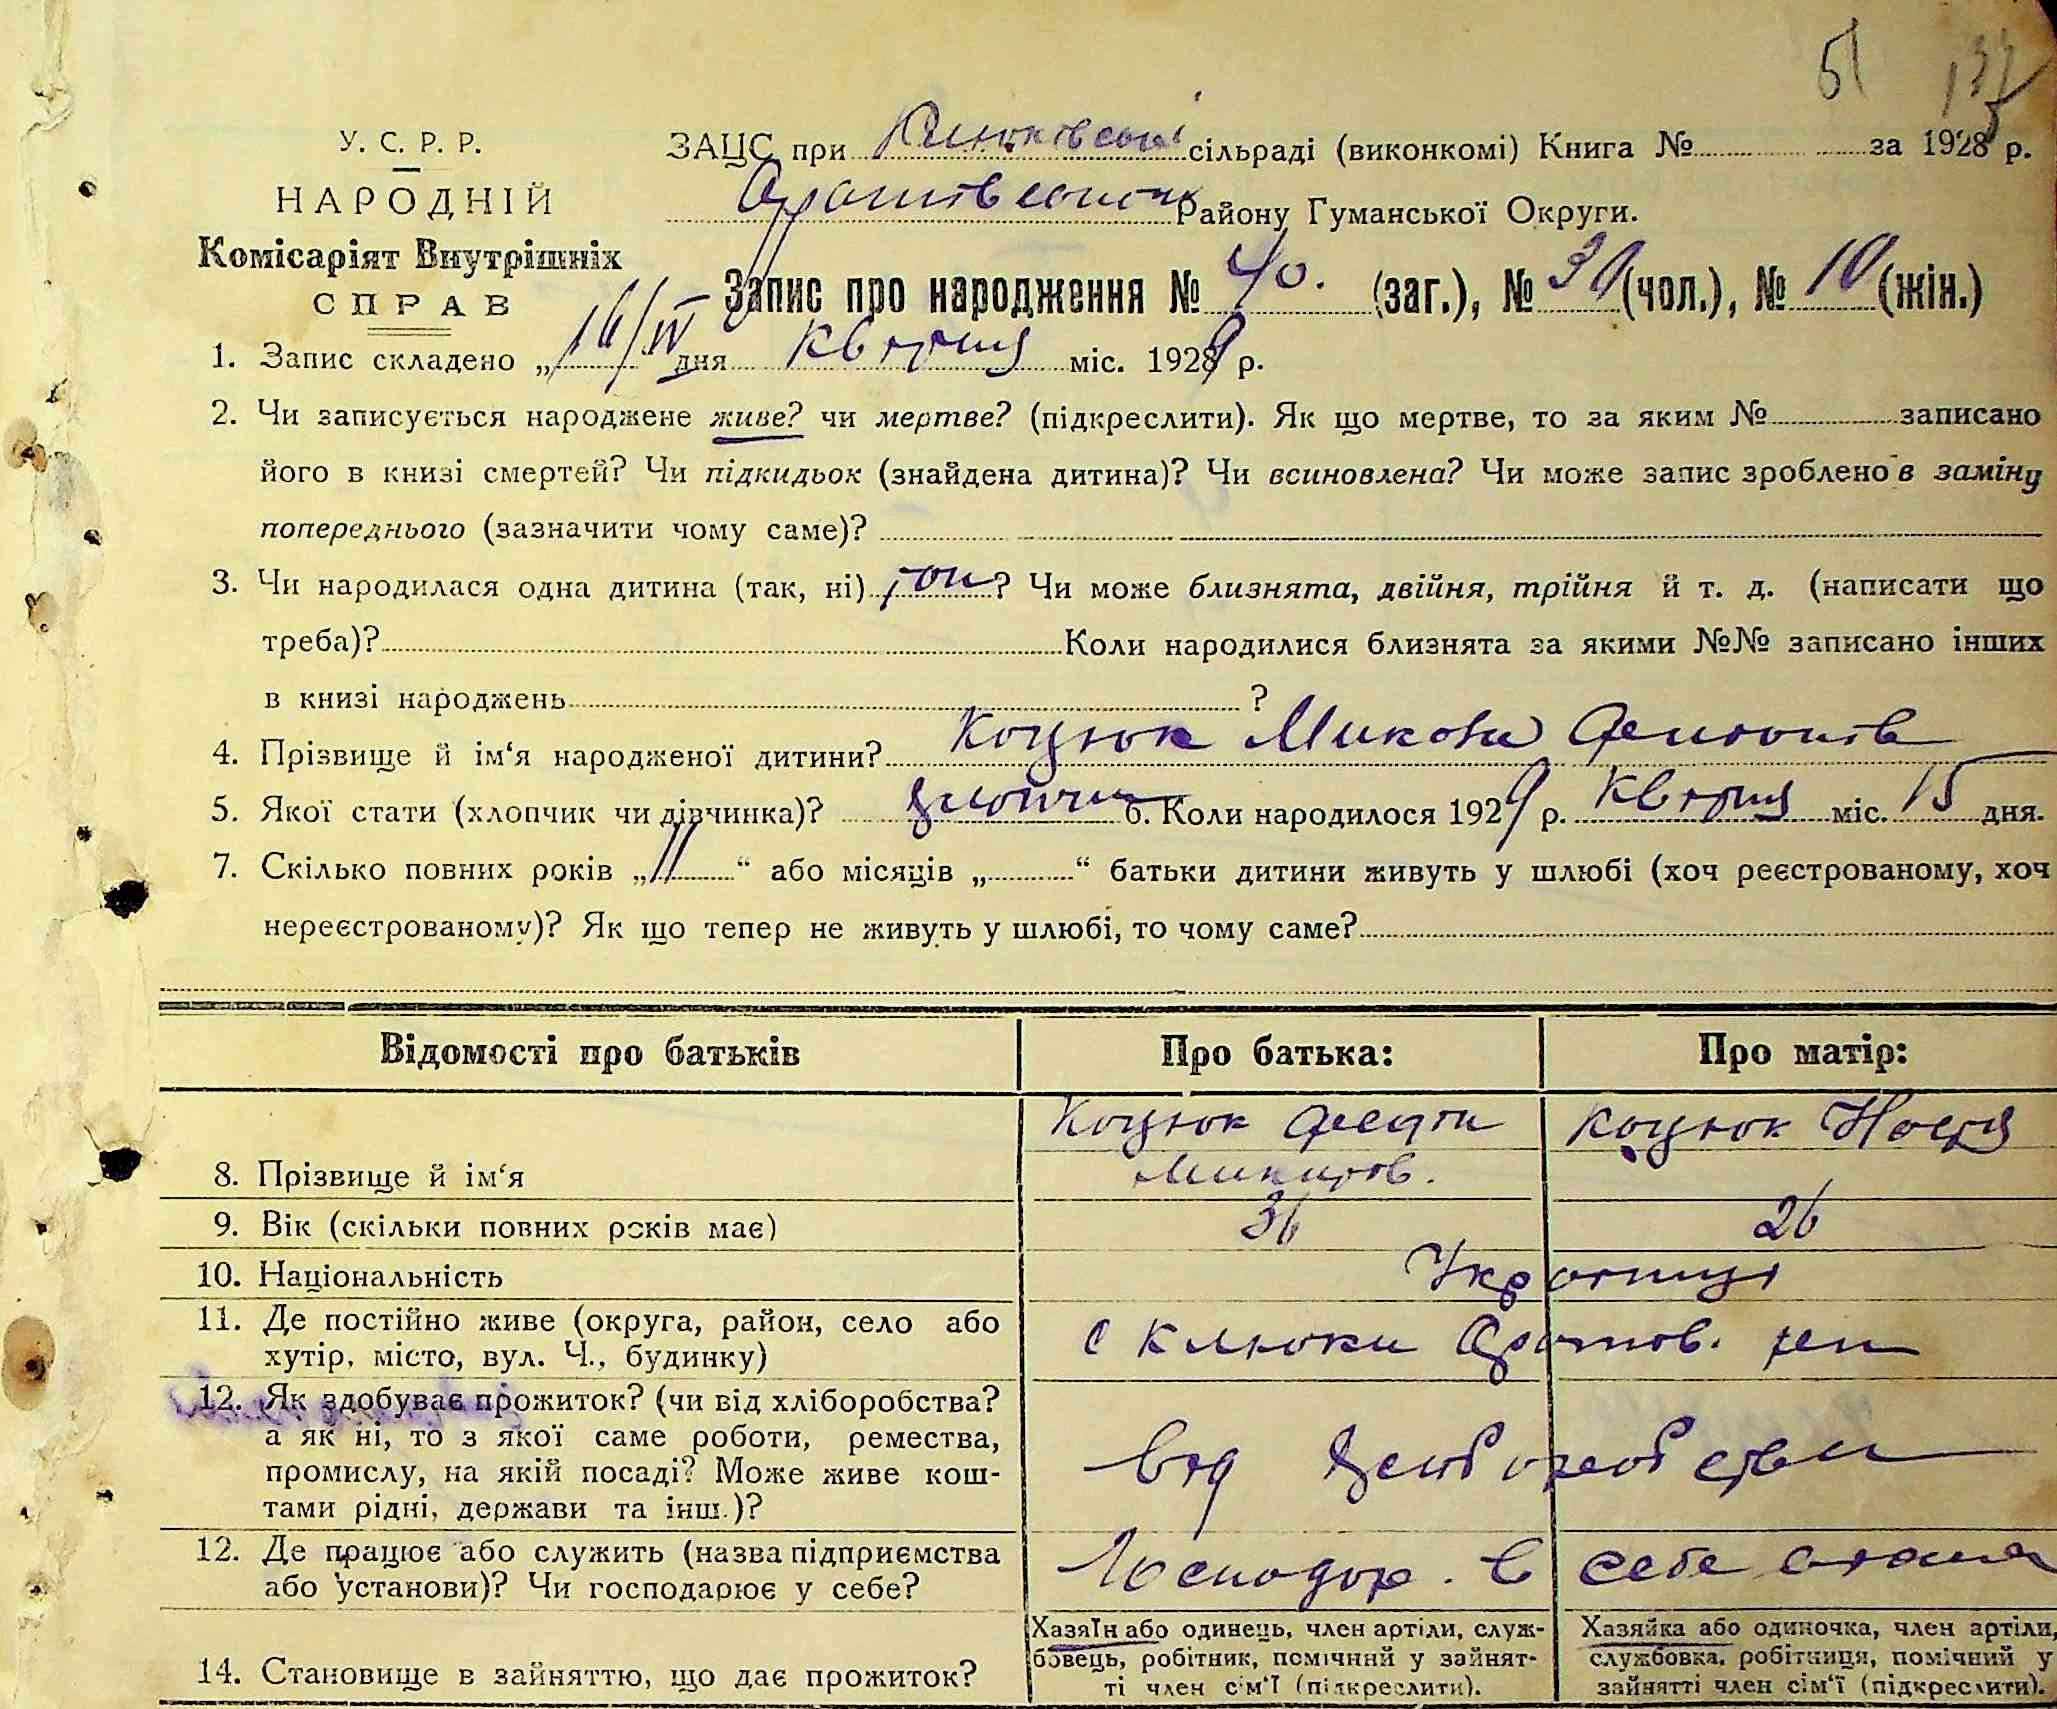 51 137
У. С. Р. Р.
НАРОДНІЙ
Комісаріят Внутрішніх
СПРАВ
ЗАЦС при Клюківській сільраді (виконкомі) Книга № за 1928 р.
Району Гуманської Округи.
Запис про народження № 40. (заг.), № 30 (чол.), № 10 (жін.)
1. Запис складено „16/IV дня квітня міс. 1929 р.
2. Чи записується народжене живе? чи мертве? (підкреслити). Як що мертве, то за яким № записано
його в книзі смертей? Чи підкидьок (знайдена дитина)? Чи всиновлена? Чи може запис зроблено в заміну
попереднього (зазначити чому саме)?
3. Чи народилася одна дитина (так, ні) ? Чи може близнята, двійня, трійня й т. д. (написати що
треба)? Коли народилися близнята за якими №№ записано інших
в книзі народжень ?
4. Прізвище й ім‘я народженої дитини? Коцюк Микола
5. Якої стати (хлопчик чи дівчинка)? хлопчик 6. Коли народилося 1929 р. квітня міс. 15 дня.
7. Скілько повних років „11“ або місяців „ “ батьки дитини живуть у шлюбі (хоч реєстрованому, хоч
нереєстрованому)? Як що тепер не живуть у шлюбі, то чому саме?
Відомості про батьків Про батька: Про матір:
8. Прізвище й ім‘я Коцюк Микитов. Коцюк Настя
9. Вік (скільки повних років має) 36 26
10. Національність Українці
11. Де постійно живе (округа, район, село або
хутір, місто, вул. Ч., будинку) с Клюки
12. Як здобуває прожиток? (чи від хліборобства?
а як ні, то з якої саме роботи, ремества,
промислу, на якій посаді? Може живе кош-
тами рідні, держави та інш.)? від хліборобства
12. Де працює або служить (назва підприємства
або установи)? Чи господарює у себе? Господар. в себе
14. Становище в зайняттю, що дає прожиток?
Хазяїн або одинець, член артіли, служ-
бовець, робітник, помічний у зайнят-
ті член сім‘ї (підкреслити).
Хазяйка або одиночка, член артіли,
службовка, робітниця, помічний у
зайнятті член сім‘ї (підкреслити).